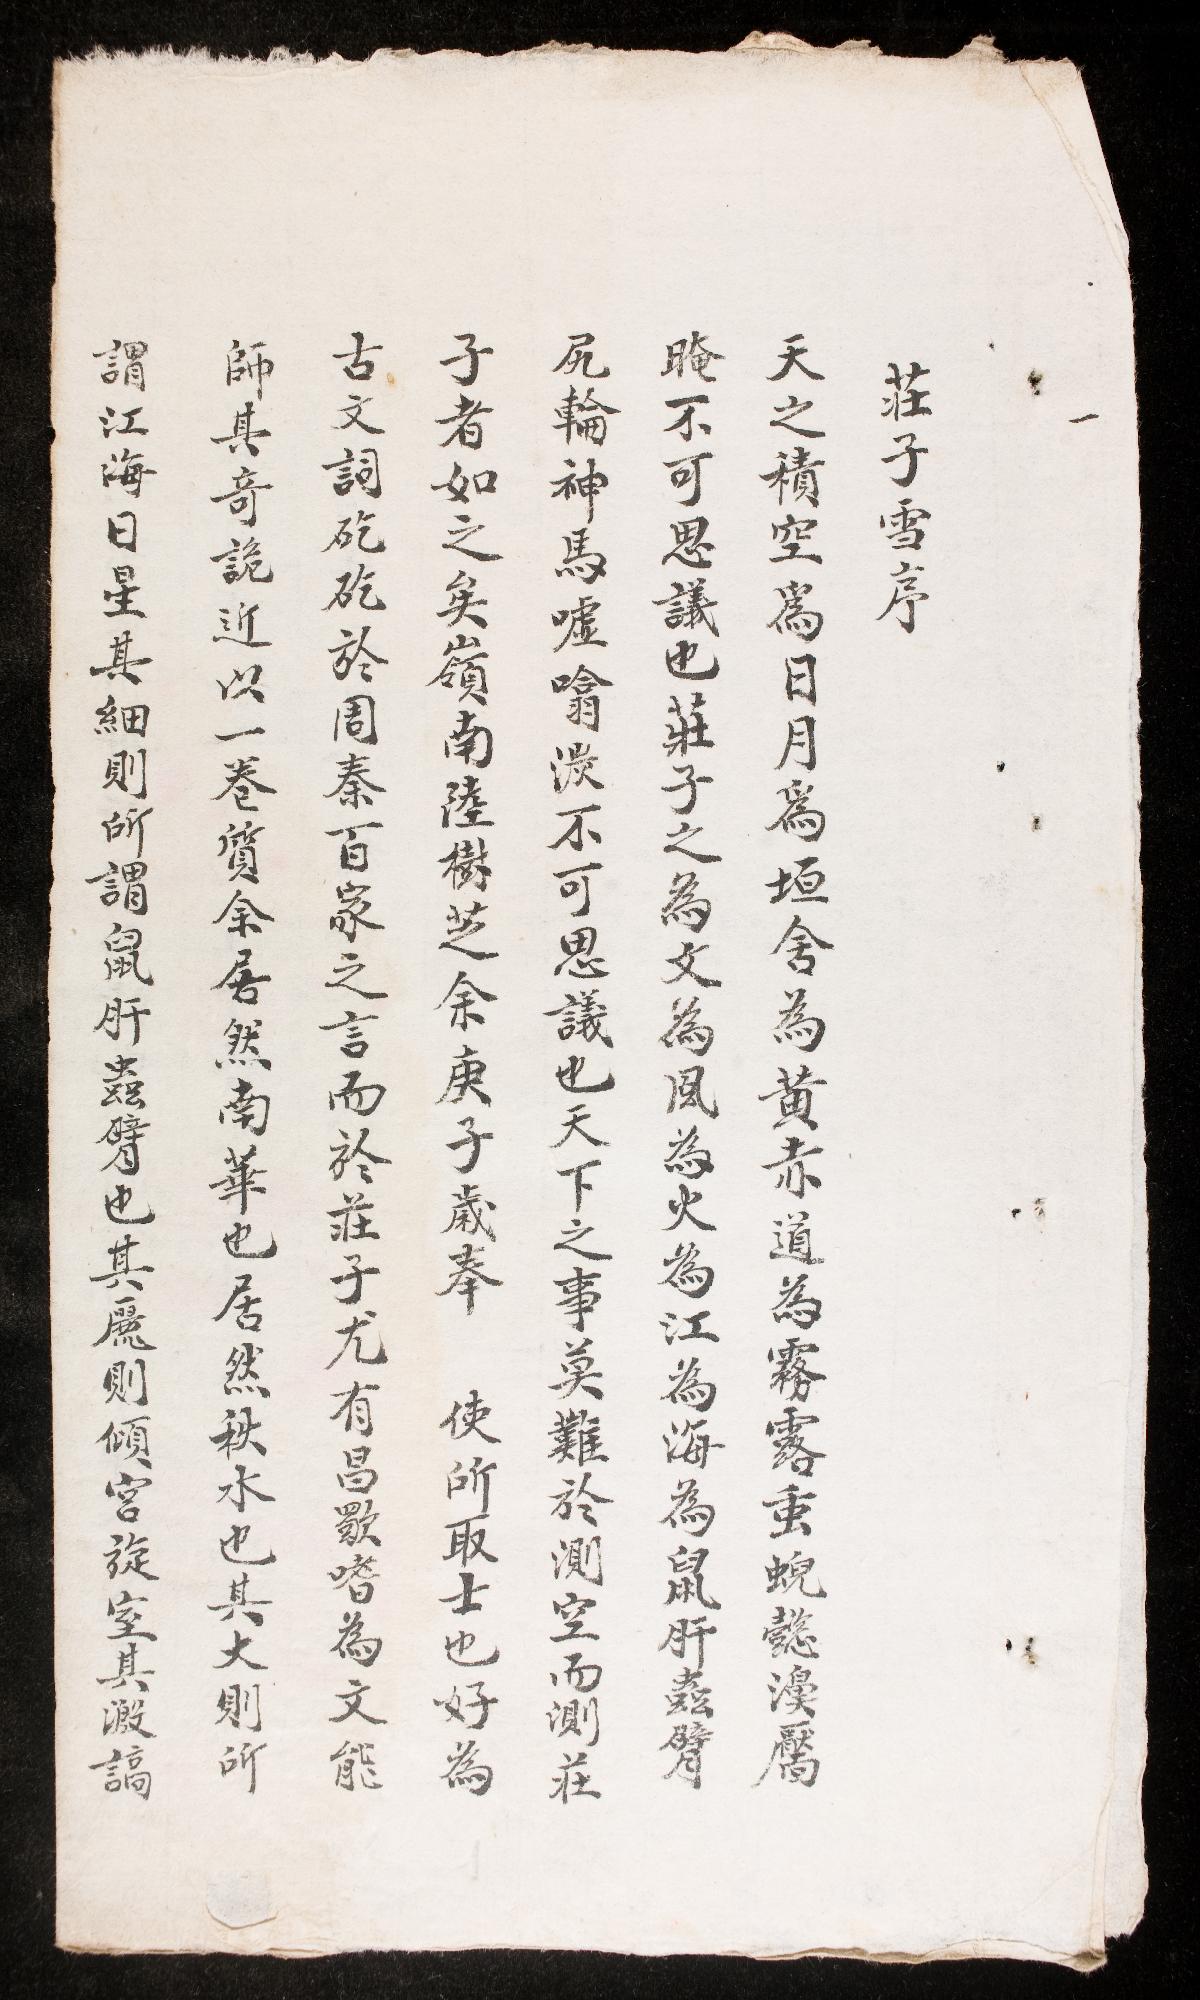 一
莊子雪序
天之積空爲日月爲垣舍為黃赤道為霧露重蜺懿濊靨
晻不可思議也莊子之為文為風為火為江為海為鼠肝蟲臂
尻輪神馬噓噏淡不可思議也天下之事莫難於測空而測莊
子者如之矣嶺南陸樹芝余庚子歲奉 使所取士也好為
古文詞矻矻於周秦百家之言而於莊子尤有昌歜嗜為文能
師其奇詭近以一卷質余居然南華也居然秋水也其大則所
謂江海日星其細則所謂鼠肝蟲臂也其麗則傾宮旋室其激謞